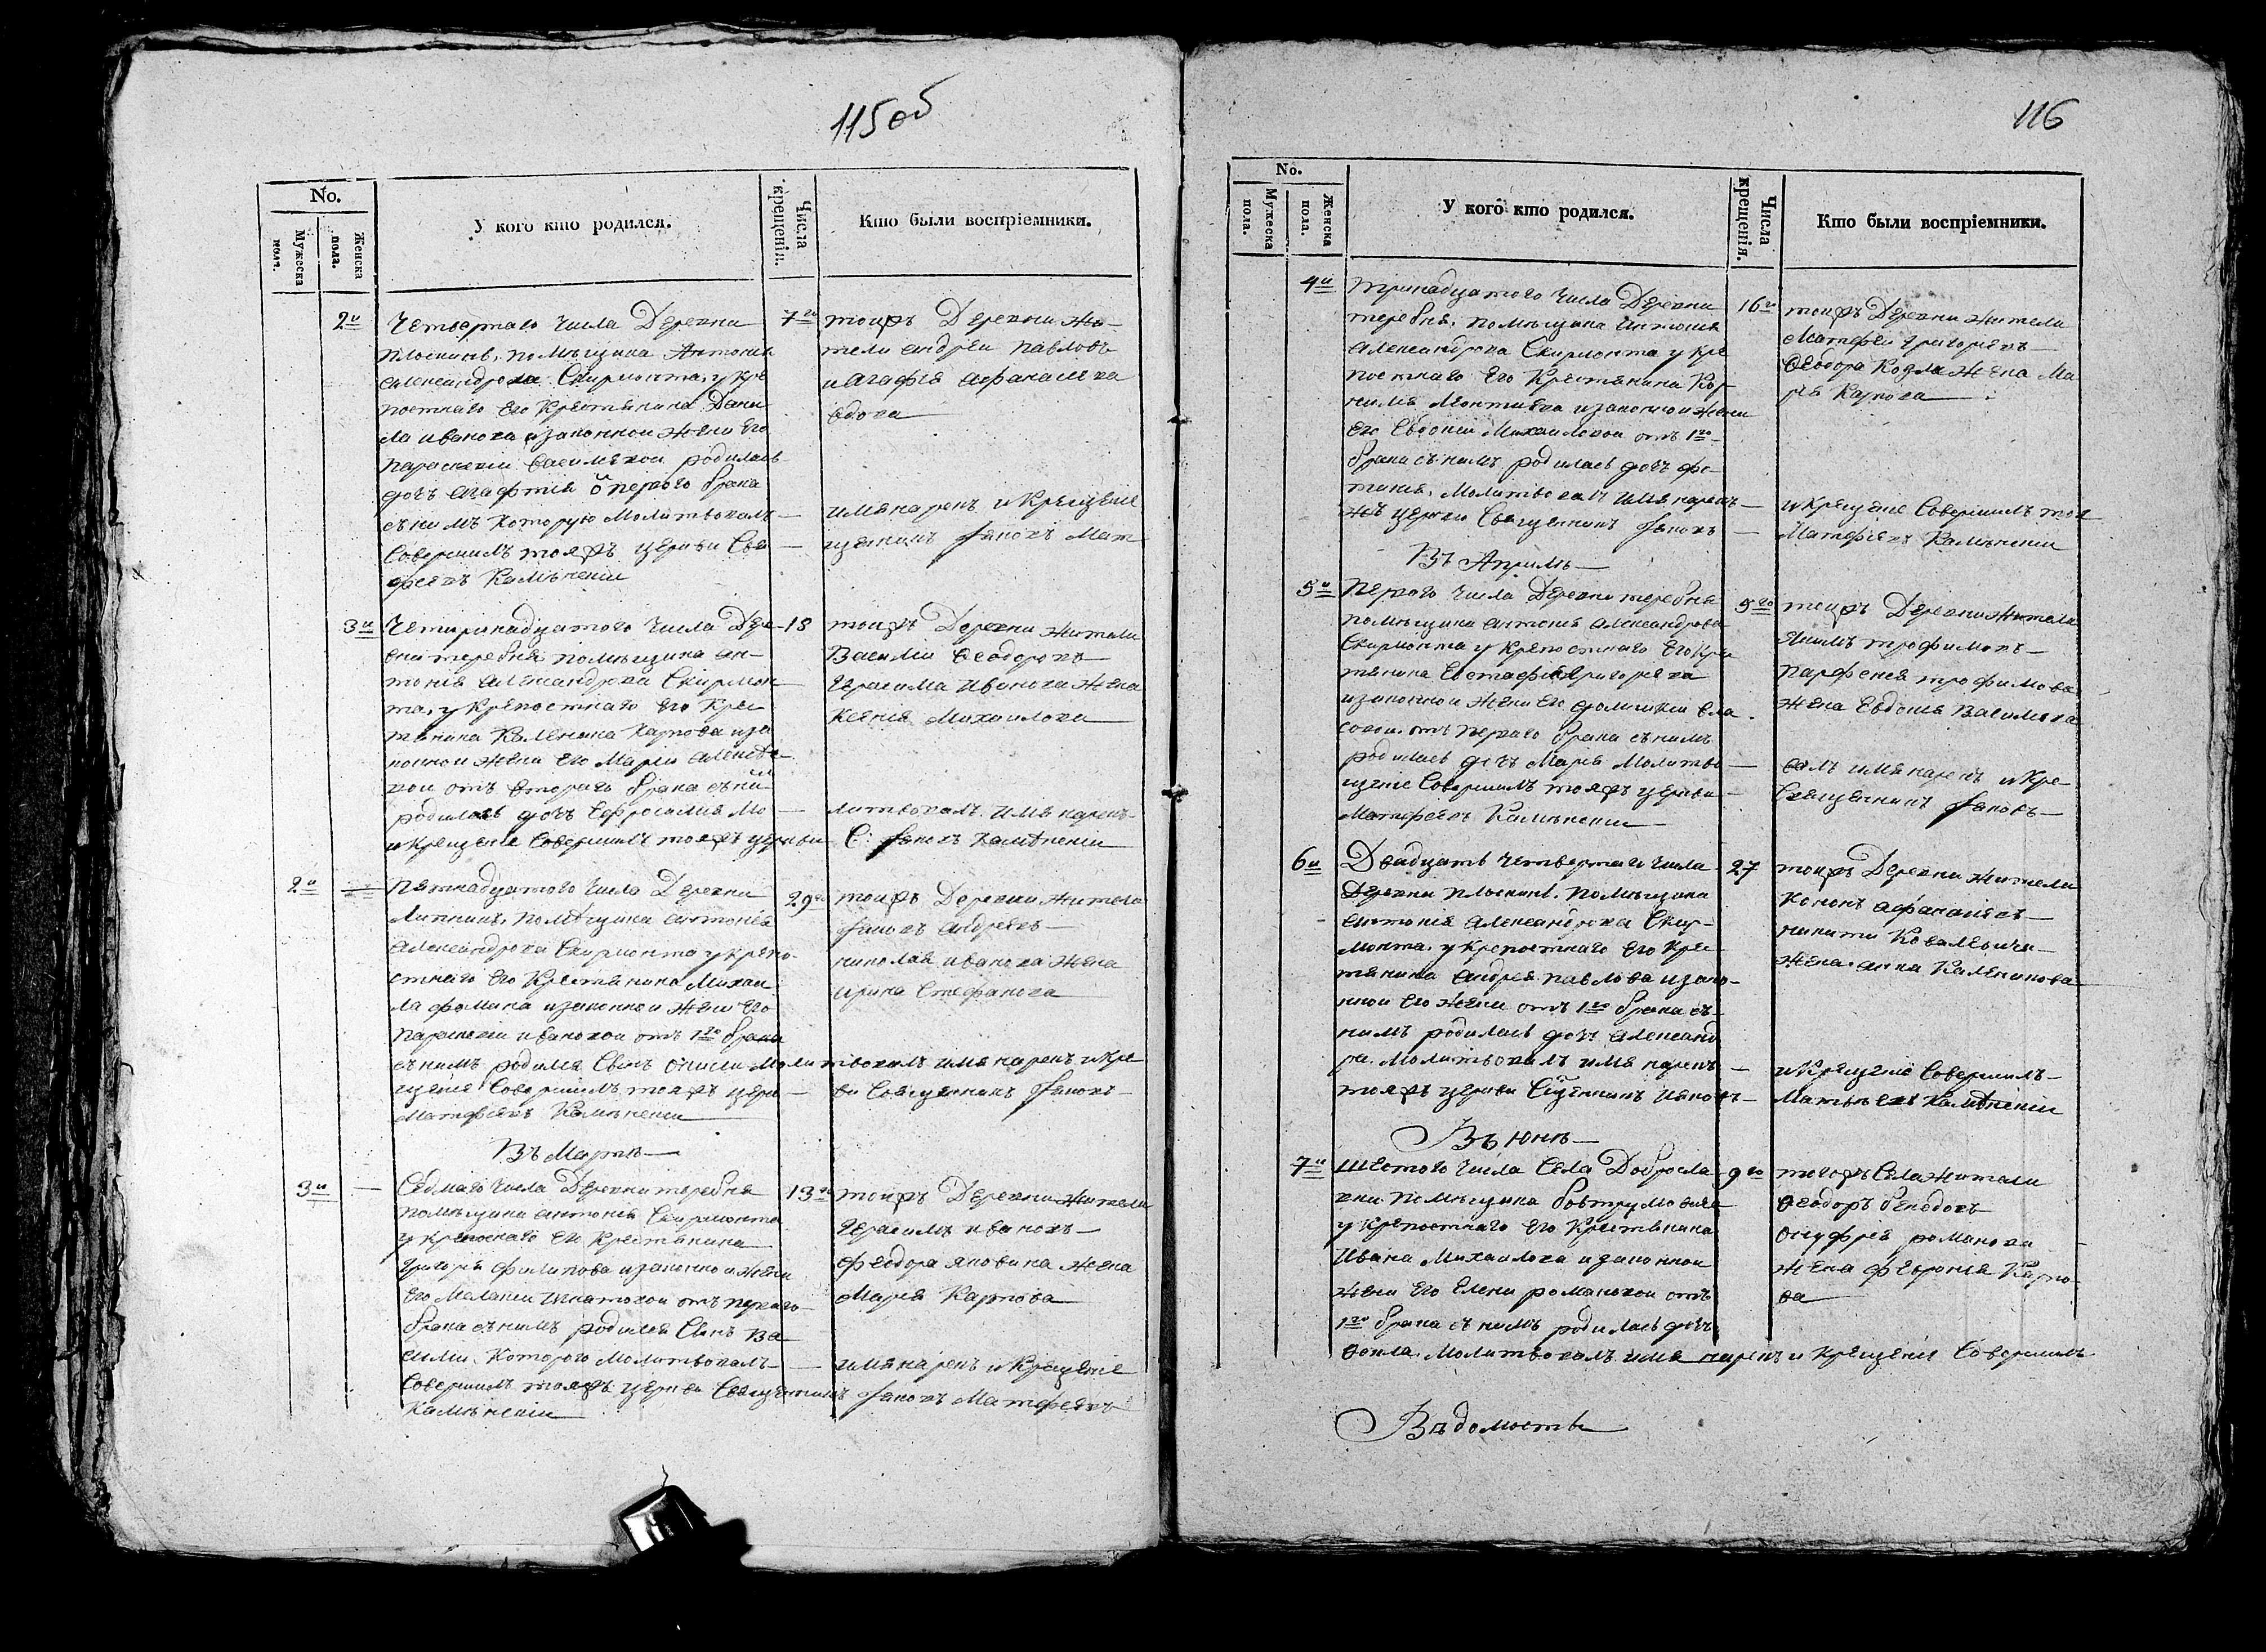 115 об
No.
Мужеска пола.
Женска пола.
У кого кто родился.
Числа крещенія.
Кто были воспріемники.
2й
Четвертаго числа Деревни
Плоскинь, помѣщика Антонія
Александрова Скирмонта, у кре
постнаго Его Крестянина Дани
ла Иванова и законной жены Его
Параскевіи Васильевой родилась
дочь Агафтія от перваго брака
съ нимъ которую молитвовалъ
Совершилъ тояжъ церкви Свя
феевъ Калинскій
7го
тоижъ Деревни жи-
тели Андреи Павловъ
и Агафія Афанасіева
вдова
имя нарекъ и Крещеніе
щенникъ Іаковъ Мат
3й
Четырнадцатого числа Дере
вни теребня помѣщика Ан-
тонія Александрова Скирмон
та, у Крепостнаго Его Крес
тянина Каленика Карпова и за
конной жены Его Маріи Алексѣе
вой отъ втораго брака съ ни
родилась дочь Ефросинія мо
и Крещеніе Совершилъ тояжъ церкви
18
тоижъ Деревни жители
Василіи Ѳеодоровъ
Герасима Иванова жена
Ксенія Михаилова
литвовалъ имя нарекъ
С. Іаковъ
2й
Пятнадцатого числа Деревни
помѣщика Антонія
Александрова Скирмонта у крепо-
стнаго Его Крестянина Михаи
ла Фомина и законной жены Его
Параскевіи Ивановой отъ 1го брака
съ нимъ родился Сынъ молитвовалъ имя нарекъ и Кре
щеніе Совершилъ тояжъ церк
Матфеевъ
29го
тоижъ Деревни жители
Іаковъ Андреевъ
Николая Иванова жена
Ирина Стефанова
ви Священникъ Іаковъ
Въ Мартѣ
3й
Седмаго числа Деревни теребня
помѣщика Антонія Скирмонта
у крепостнаго Его Крестянина
Григорія Филипова и законной жены
Его Маланіи Игнатовой отъ перваго
брака съ нимъ родился Сынъ Ва
силіи, Которого молитвовалъ
Совершилъ тояжъ церкви Священникъ
13го
тоижъ Деревни жители
Герасимъ Ивановъ
Феодора Яковина жена
Марія Карпова
имя нарекъ и Крещеніе
Іаковъ Матфеевъ
116
No.
Мужеска пола.
Женска пола.
У кого кто родился.
Числа крещенія.
Кто были воспріемники.
4й
тринадцатого числа Деревни
теребня, помѣщика Антонія
Александрова Скирмонта у кре
постнаго Его Крестянина Кор
нилія Леонтиева и законной жены
Его Евдокіи Михаиловой отъ 1го
брака съ нимъ родилась дочь Фо
тинія, молитвовалъ имя нарекъ
жъ церкви Священникъ Іаковъ
16го
тоижъ Деревни жители
Матфеи Григоріевъ
Ѳеодора Козла жена Ма
рія Карпова
и Крещеніе Совершилъ тоя
Матфеевъ
Въ Априлѣ
5й
Перваго числа Деревни теребня
помѣщика Антонія Александрова
Скирмонта у крепостнаго Его Кре
тянина Евстафія Григорѣва
и законной жены Его Домникіи Вла
совой отъ перваго брака съ нимъ
родилась дочь Марія молитво
щеніе Совершилъ тояжъ церкви
Матфеевъ
5го
тоижъ Деревни жители
Якимъ Трофимовъ
Парфенія Трофимова
жена Евдокія Васильева
валъ имя нарекъ и Кре
Священникъ Іаковъ
6й
Двадцать четвертаго числа
Деревни Плоскинь, помѣщика
Антонія Александрова Скир-
монта, у Крепостнаго Его Кре
тянина Андрея Павлова и зако-
нной Его жены отъ 1го брака съ
нимъ родилась дочь Александ
ра, молитвовалъ имя нарекъ
тояжъ церкви Сщенникъ Іаковъ
27
тоижъ Деревни жители
Кононъ Афанасіевъ
Никиты Ковалевича
жена Анна Каленикова
и Крещеніе Совершилъ
Въ Юнѣ
7й
Шестого числа Села Доброслав
ки помѣщика
у крепостнаго Его Крестянина
Ивана Михаилова и законной
жены Его Елены Романовой отъ
1го брака съ нимъ родилась дочь
Ѳекла, молитвовалъ имя нарекъ и Крещеніе Совершилъ
9го
тогожъ Села жители
Ѳеодоръ
Онуфрія Романова
жена Февронія Карпо-
ва
Вѣдомость